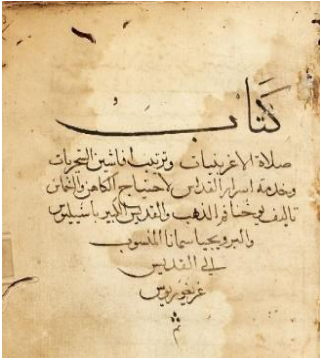 كتاب
صلاة الاغربنيات وترتيب افاشين التجزيات
وخدمة اسرار القداس لاحتياج الكاهن والشماس
تاليف يوحنا فم الذهب والقديس الكبير باسيليوس
والبرويجياسمانا المنسوب
الي القديس
غريغوريوس
تم